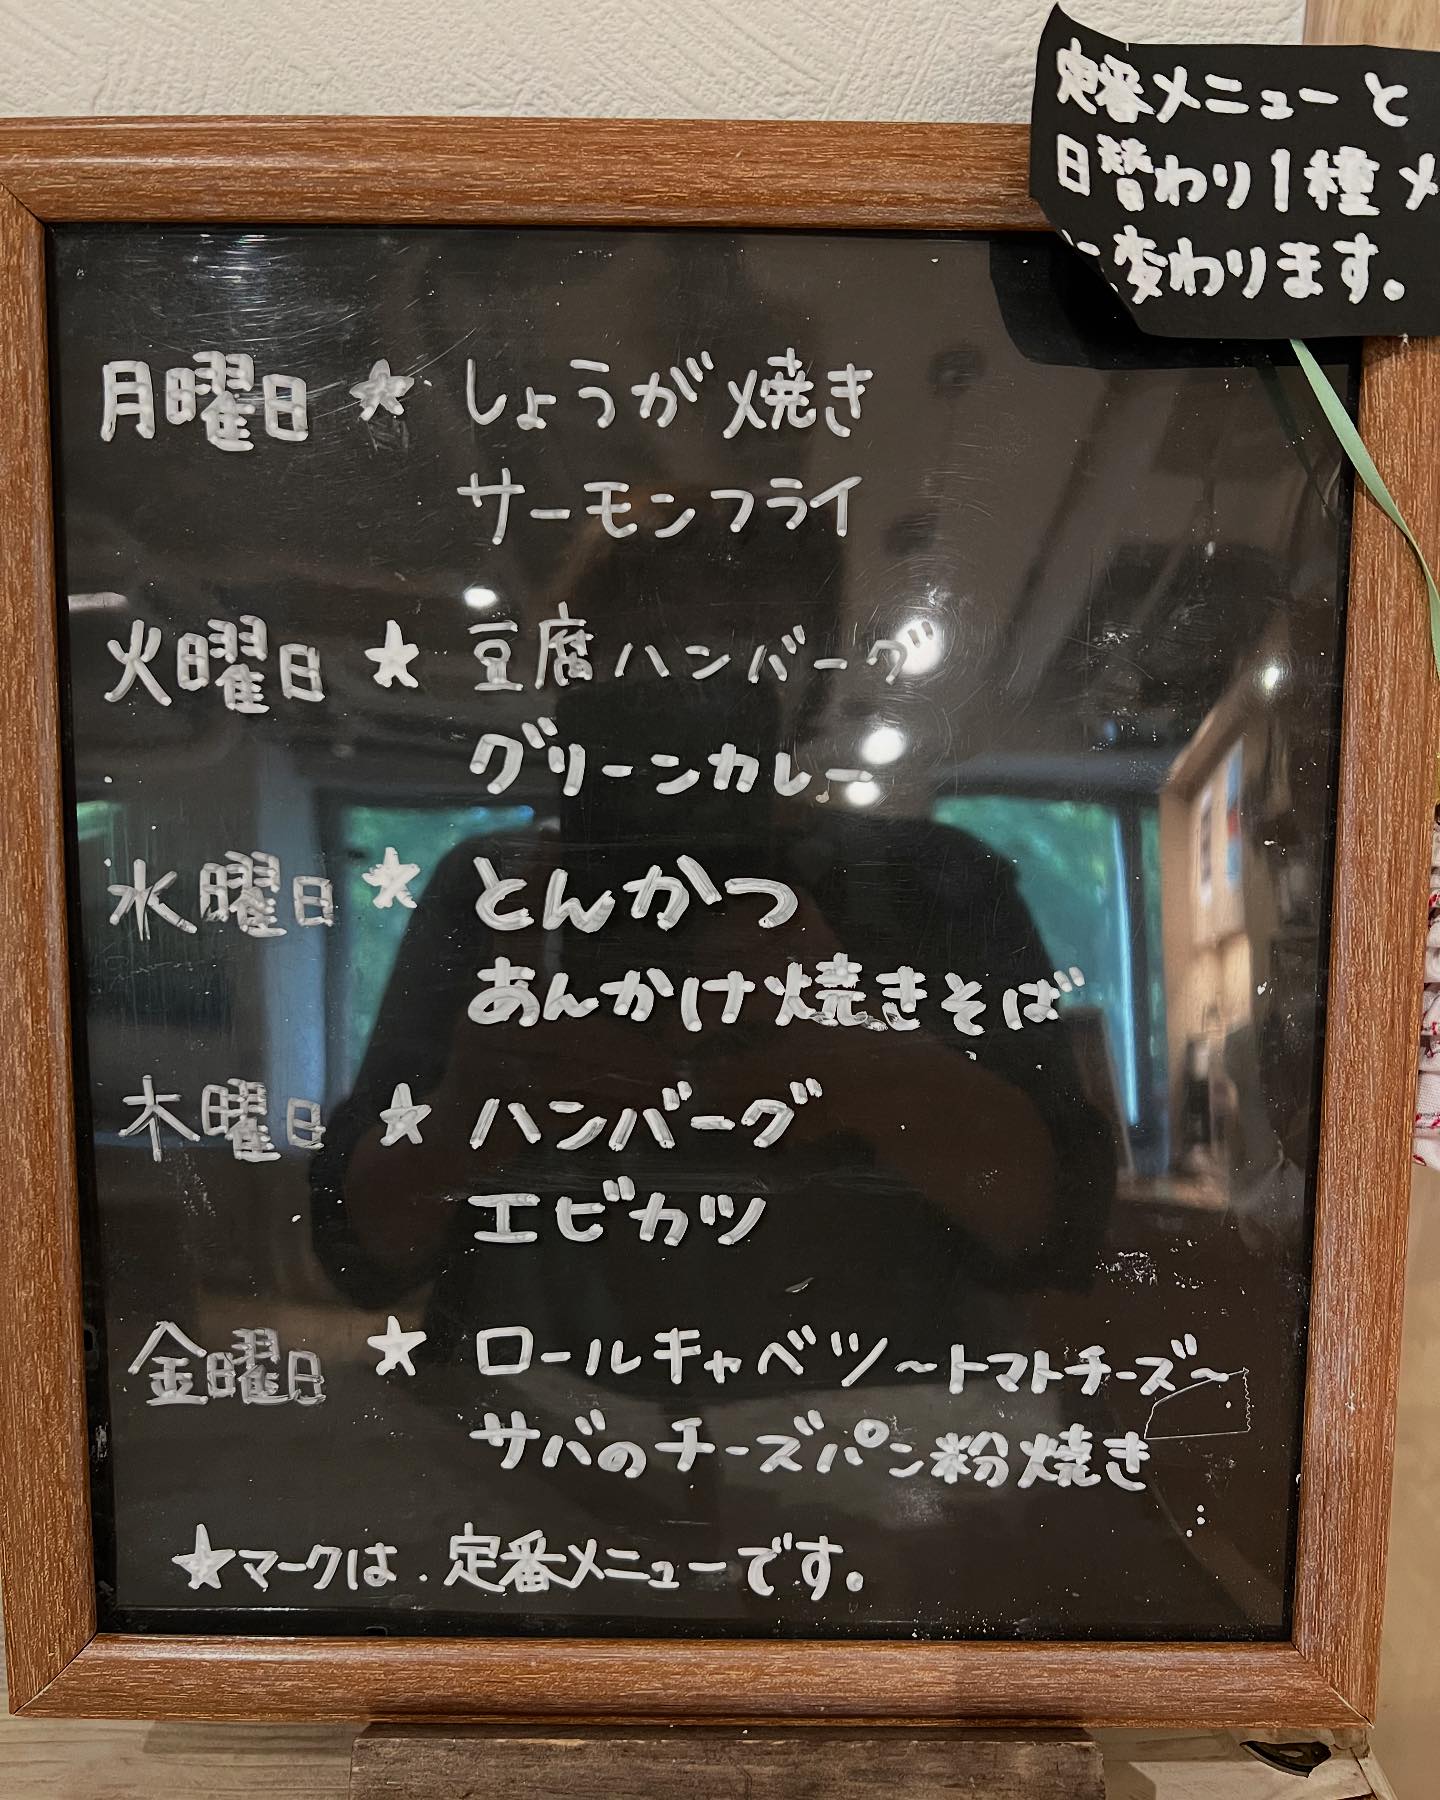 定番メニューと
日替わり1種メ
に変わります。
月曜日 ★ しょうが焼き
サーモンフライ
火曜日 ★ 豆腐ハンバーグ
グリーンカレー
水曜日 ★ とんかつ
あんかけ焼きそば
木曜日 ★ ハンバーグ
エビカツ
金曜日 ★ ロールキャベツ~トマトチーズ~
サバのチーズパン粉焼き
★マークは.定番メニューです。